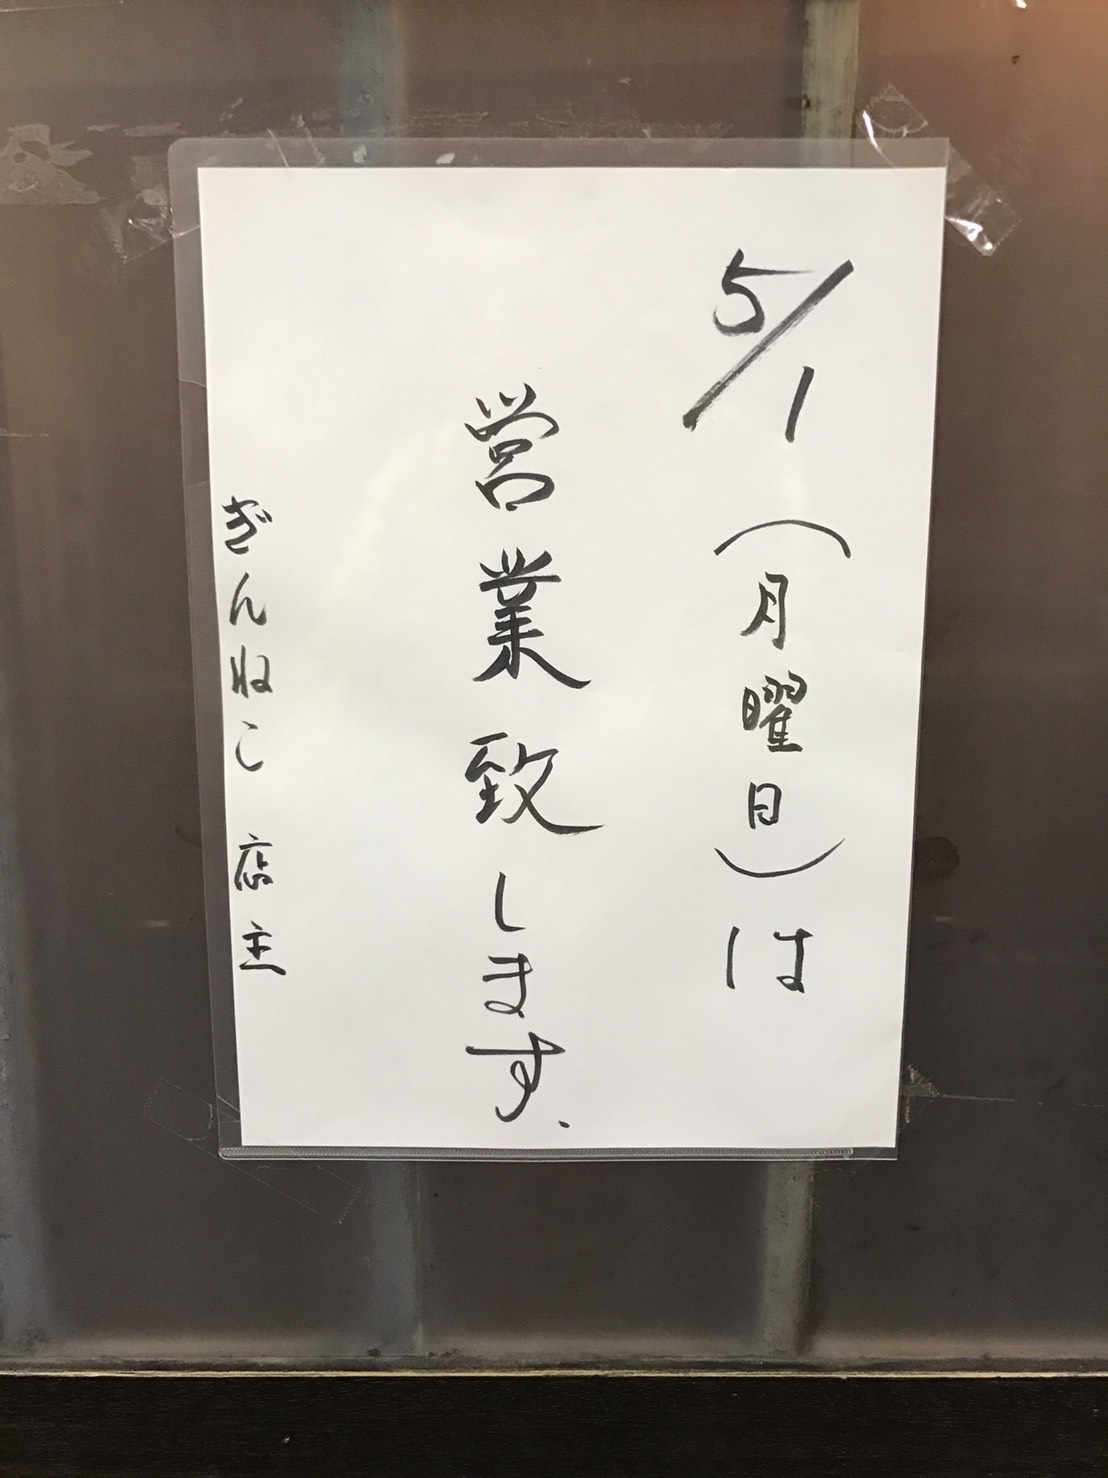 5/1(月曜日)は
営業致します、
ぎんねこ 店主